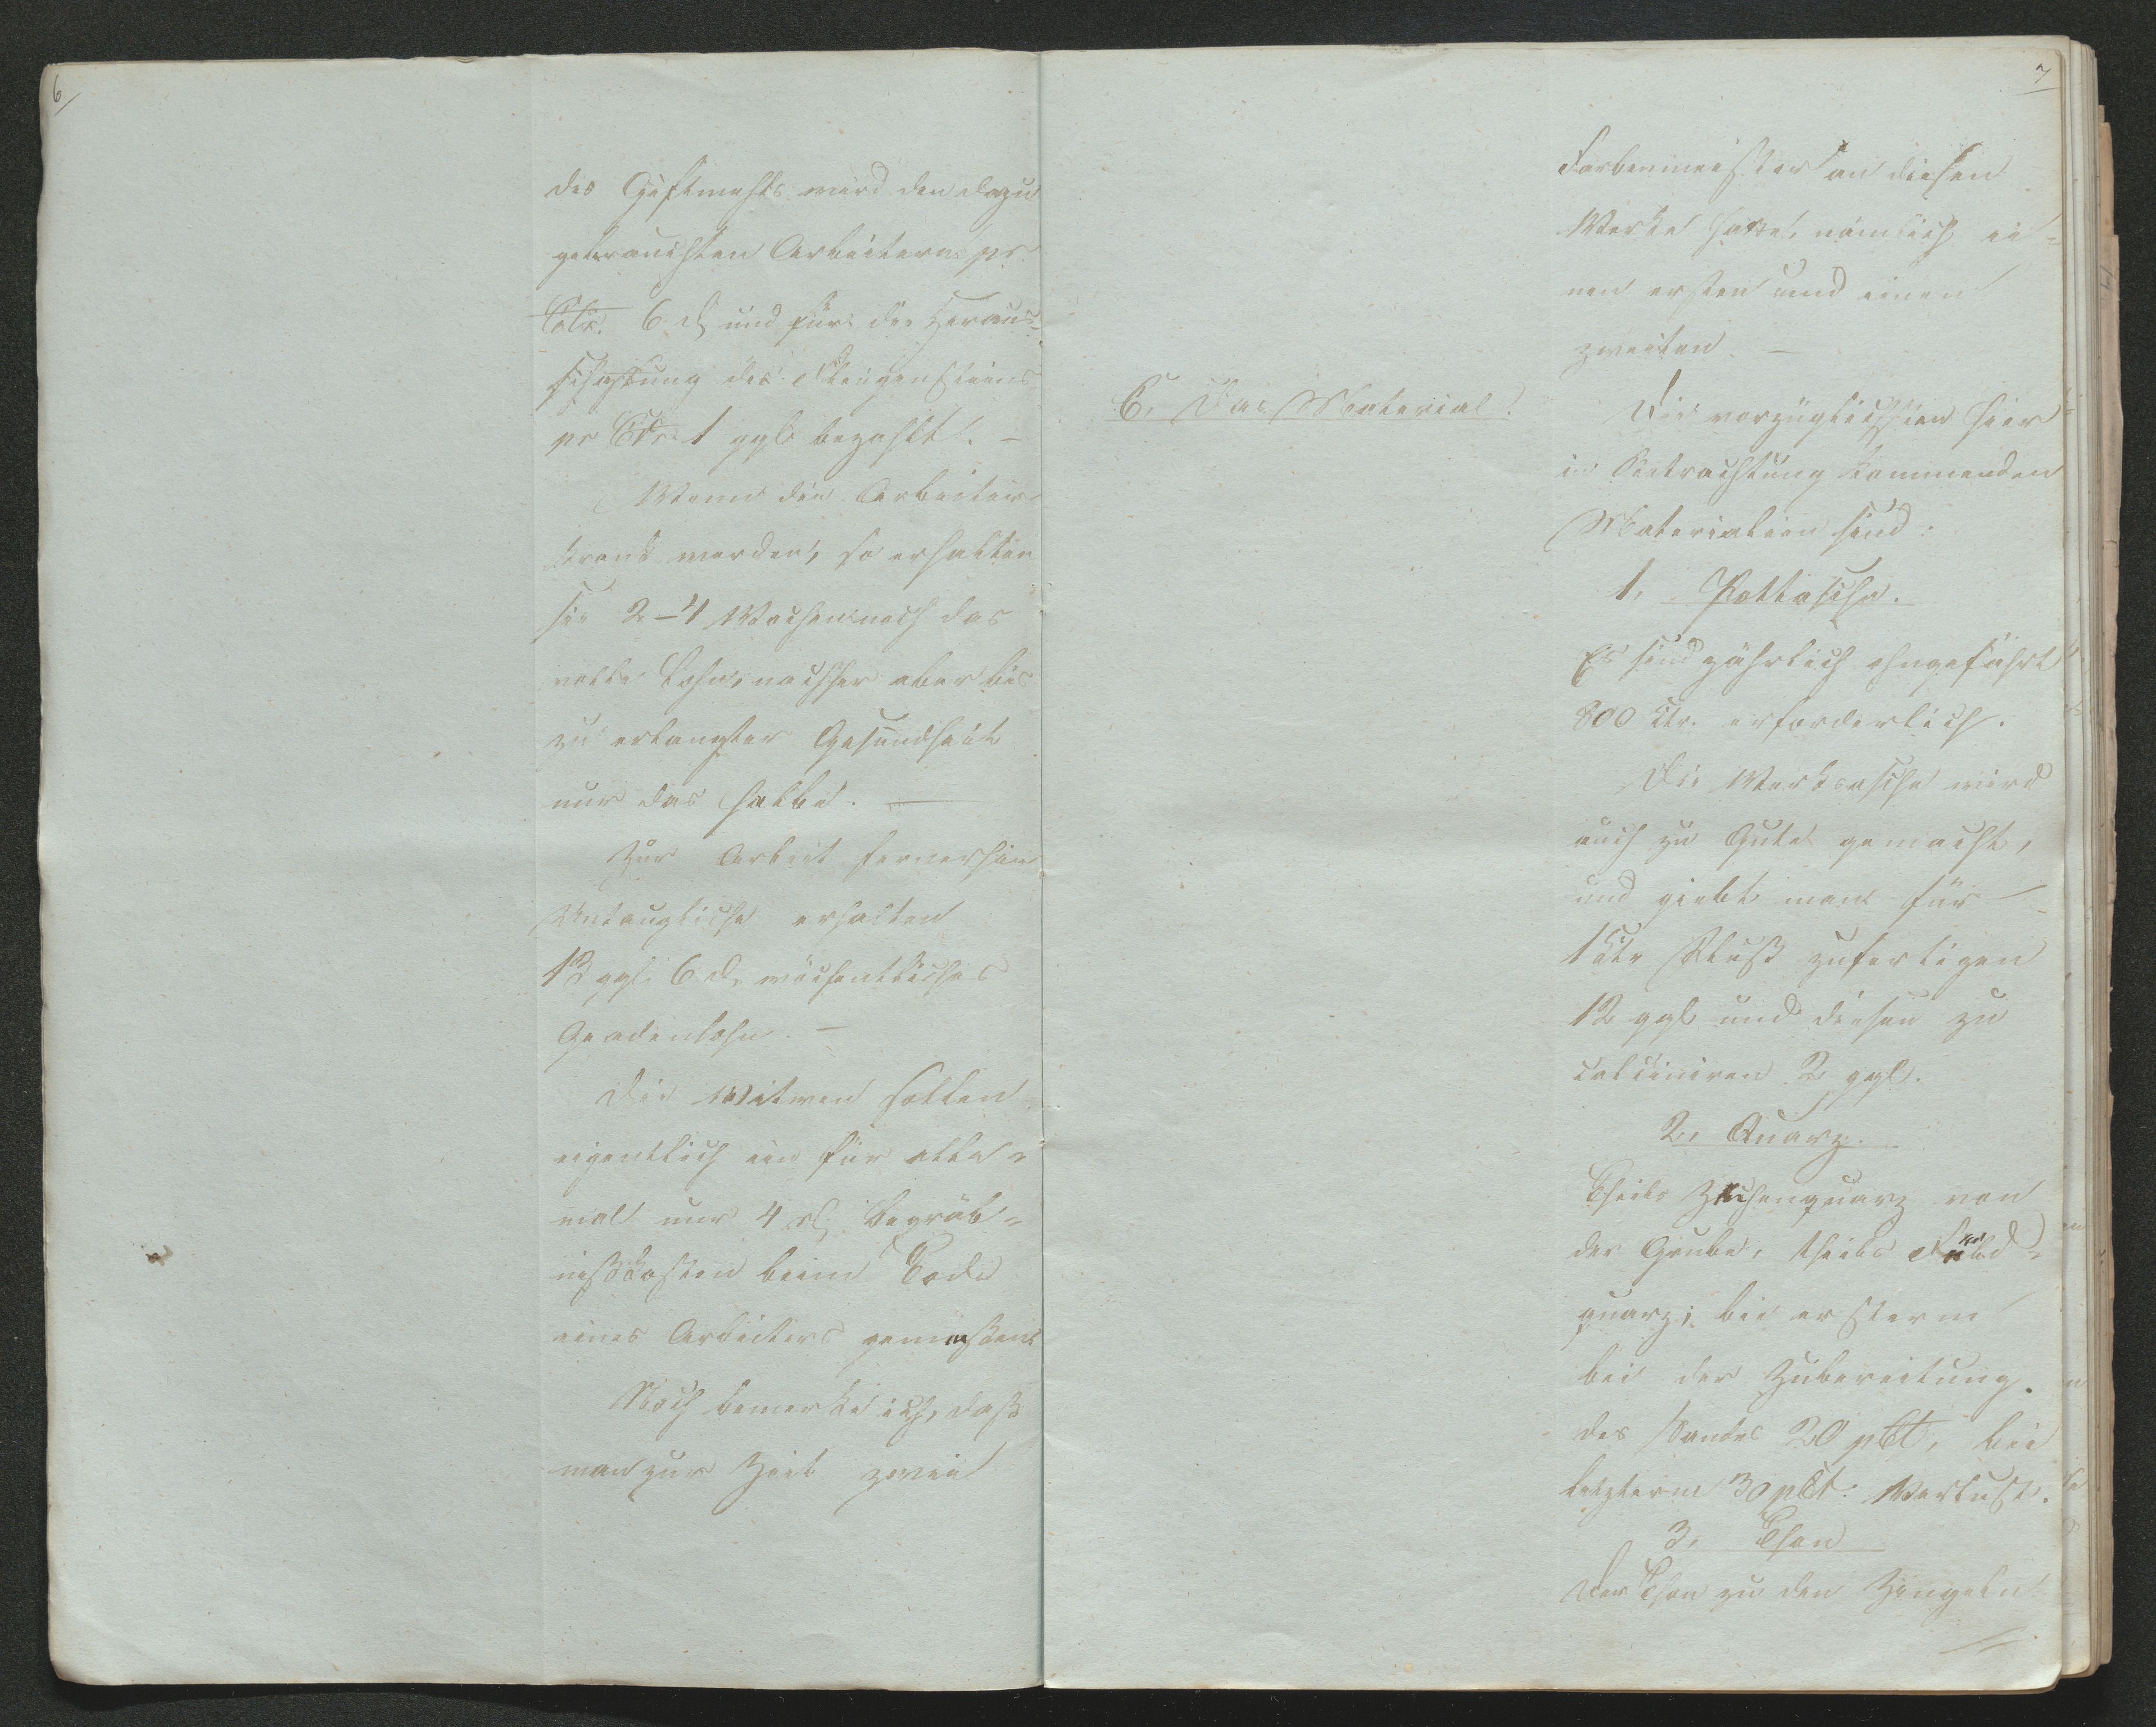 6/
des Giftmehls wird den dazu
gebrauchten Arbeitern pr.
Ctr. 6 d und für die Heraus-
schaffung des Fliegensteins
pr Ctr. 1 ggl bezahlt. –
Wenn die Arbeiter
krank werden, so erhalten
sie 2–4 Wochen noch das
volle Lohn, nachher aber bis
zu erlangter Gesundheit
nur das halbe. —
Zur Arbeit fernerhin
Untaugliche erhalten
13 ggl. 6 d. wöchentliches
Gnadenlohn. –
Die Witwen sollen
eigentlich ein für alle-
mal nur 4 rl Begräb-
nißkosten beim Tode
eines Arbeiters
Noch bemerke ich, daß
man zur Zeit zwei
7
Farbenmeister an diesen
Werke hatte, nämlich ei-
nen ersten und einen
zweiten. –
C. Das Material.
Die vorzüglichsten hier
in Betrachtung kommenden
Materialien sind:
1. Pottasche.
Es sind jährlich ohngefährt
800 Ctr. erforderlich.
Die Werksasche wird
auch zu Gute gemacht,
und giebt man für
1 Ctr Fluß zufertigen
12 ggl und diesen zu
calciniren 2 ggl.
2. Quarz.
Theils Zechenquarz von
der Grube, theils Feld-
quarz; bei ersterm
bei der Zubereitung
des Sandes 20 pCt, bei
letzterm 30 pCt: Verlust.
3. Thon
Der Thon zu den Ziegeln